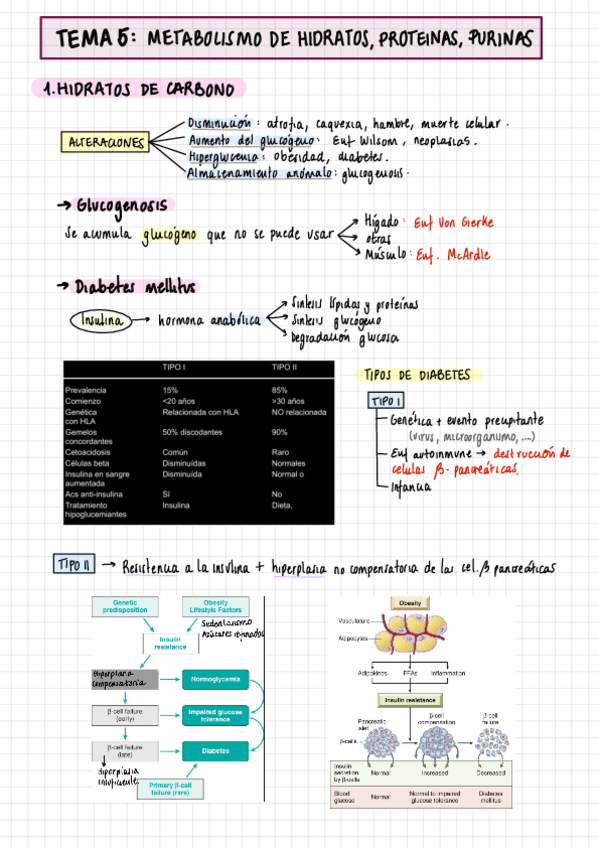 TEMA 5: METABOLISMO DE HIDRATOS, PROTEINAS, PURINAS
1. HIDRATOS DE CARBONO
ALTERACIONES
Disminución: atrofia, caquexia, hambre, muerte celular.
Aumento del glucógeno: Enf Wilsom, neoplasias.
Hiperglucemia: obesidad, diabetes.
Almacenamiento anómalo: glucogenosis.
→ Glucogenosis
Se acumula glucógeno que no se puede usar
Hígado: Enf Von Gierke
otras
Músculo: Enf. McArdle
→ Diabetes mellitus
Insulina → hormona anabólica
Síntesis lípidos y proteínas
Síntesis glucógeno
Degradación glucosa
TIPO I TIPO II
Prevalencia 15% 85%
Comienzo <20 años >30 años
Genética Relacionada con HLA NO relacionada
con HLA
Gemelos 50% discodantes 90%
concordantes
Cetoacidosis Común Raro
Células beta Disminuídas Normales
Insulina en sangre Disminuída Normal o
aumentada
Acs anti-insulina Sí No
Tratamiento Insulina Dieta,
hipoglucemiantes
TIPOS DE DIABETES
TIPO I
Genética + evento precipitante
(virus, microorganismo, ...)
Enf autoinmune → destrucción de
celulas β-pancreáticas.
Infancia
TIPO II → Resistencia a la insulina + hiperplasia no compensatoria de las cel. β pancreáticas
Genetic
predisposition
Obesity
Lifestyle Factors
Sedentarismo
Azúcares refinados
Insulin
resistance
Hiperplasia
compensatoria
Normoglycemia
β-cell failure
(early)
Impaired glucose
tolerance
β-cell failure
(late)
Diabetes
Hiperplasia
insuficiente
Primary β-cell
failure (rare)
Obesity
Vasculature
Adipocytes
Adipokines FFAs Inflammation
Insulin resistance
Pancreatic
islet
β-cell
compensation
β-cell
failure
β-cells
Insulin
secretion
by β-cells
Normal Increased Decreased
Blood
glucose
Normal
Normal to impaired
glucose tolerance
Diabetes
mellitus